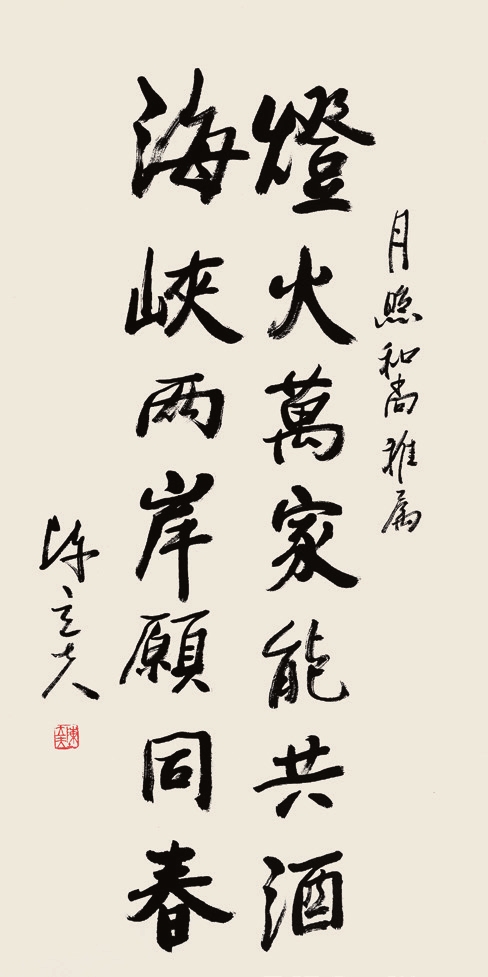 月照和尚雅属
燈火萬家能共酒
海峽两岸願同春
陳立夫